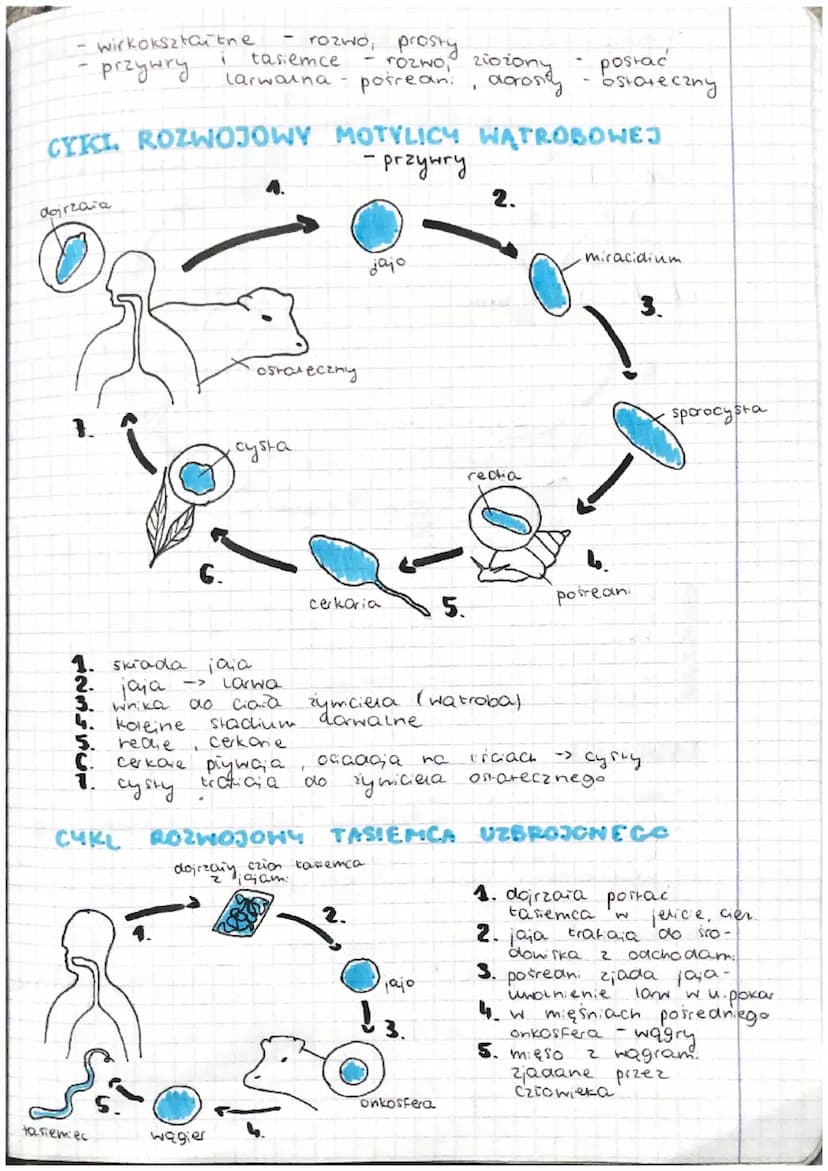 - wirkokształtne - rozwój prosty
- przywry i tasiemce - rozwój złożony - postać
larwalna - pośredni, dorosły - ostateczny
CYKL ROZWOJOWY MOTYLICY WĄTROBOWEJ
- przywry
1.
2.
dojrzała
jajo
miracidium
3.
ostateczny
sporocysta
7.
cysta
redia
4.
6.
cerkaria
5.
pośredni
1. składa jaja
2. jaja -> larwa
3. wnika do ciała żywiciela (wątroba)
4. kolejne stadium larwalne
5. redie, cerkarie
6. cerkarie pływają, osiadają na liściach -> cysty
7. cysty trafiają do żywiciela ostatecznego
CYKL ROZWOJOWY TASIEMCA UZBROJONEGO
dojrzały człon tasiemca
z jajami
1.
2.
jajo
3.
onkosfera
4.
wągier
5.
tasiemiec
1. dojrzała postać
tasiemca w jelicie, cien.
2. jaja trafiają do śro-
dowiska z odchodami
3. pośredni zjada jaja -
uwolnienie larw w u.pokar
4. w mięśniach pośredniego
onkosfera - wągry
5. mięso z wągrami
zjadane przez
człowieka